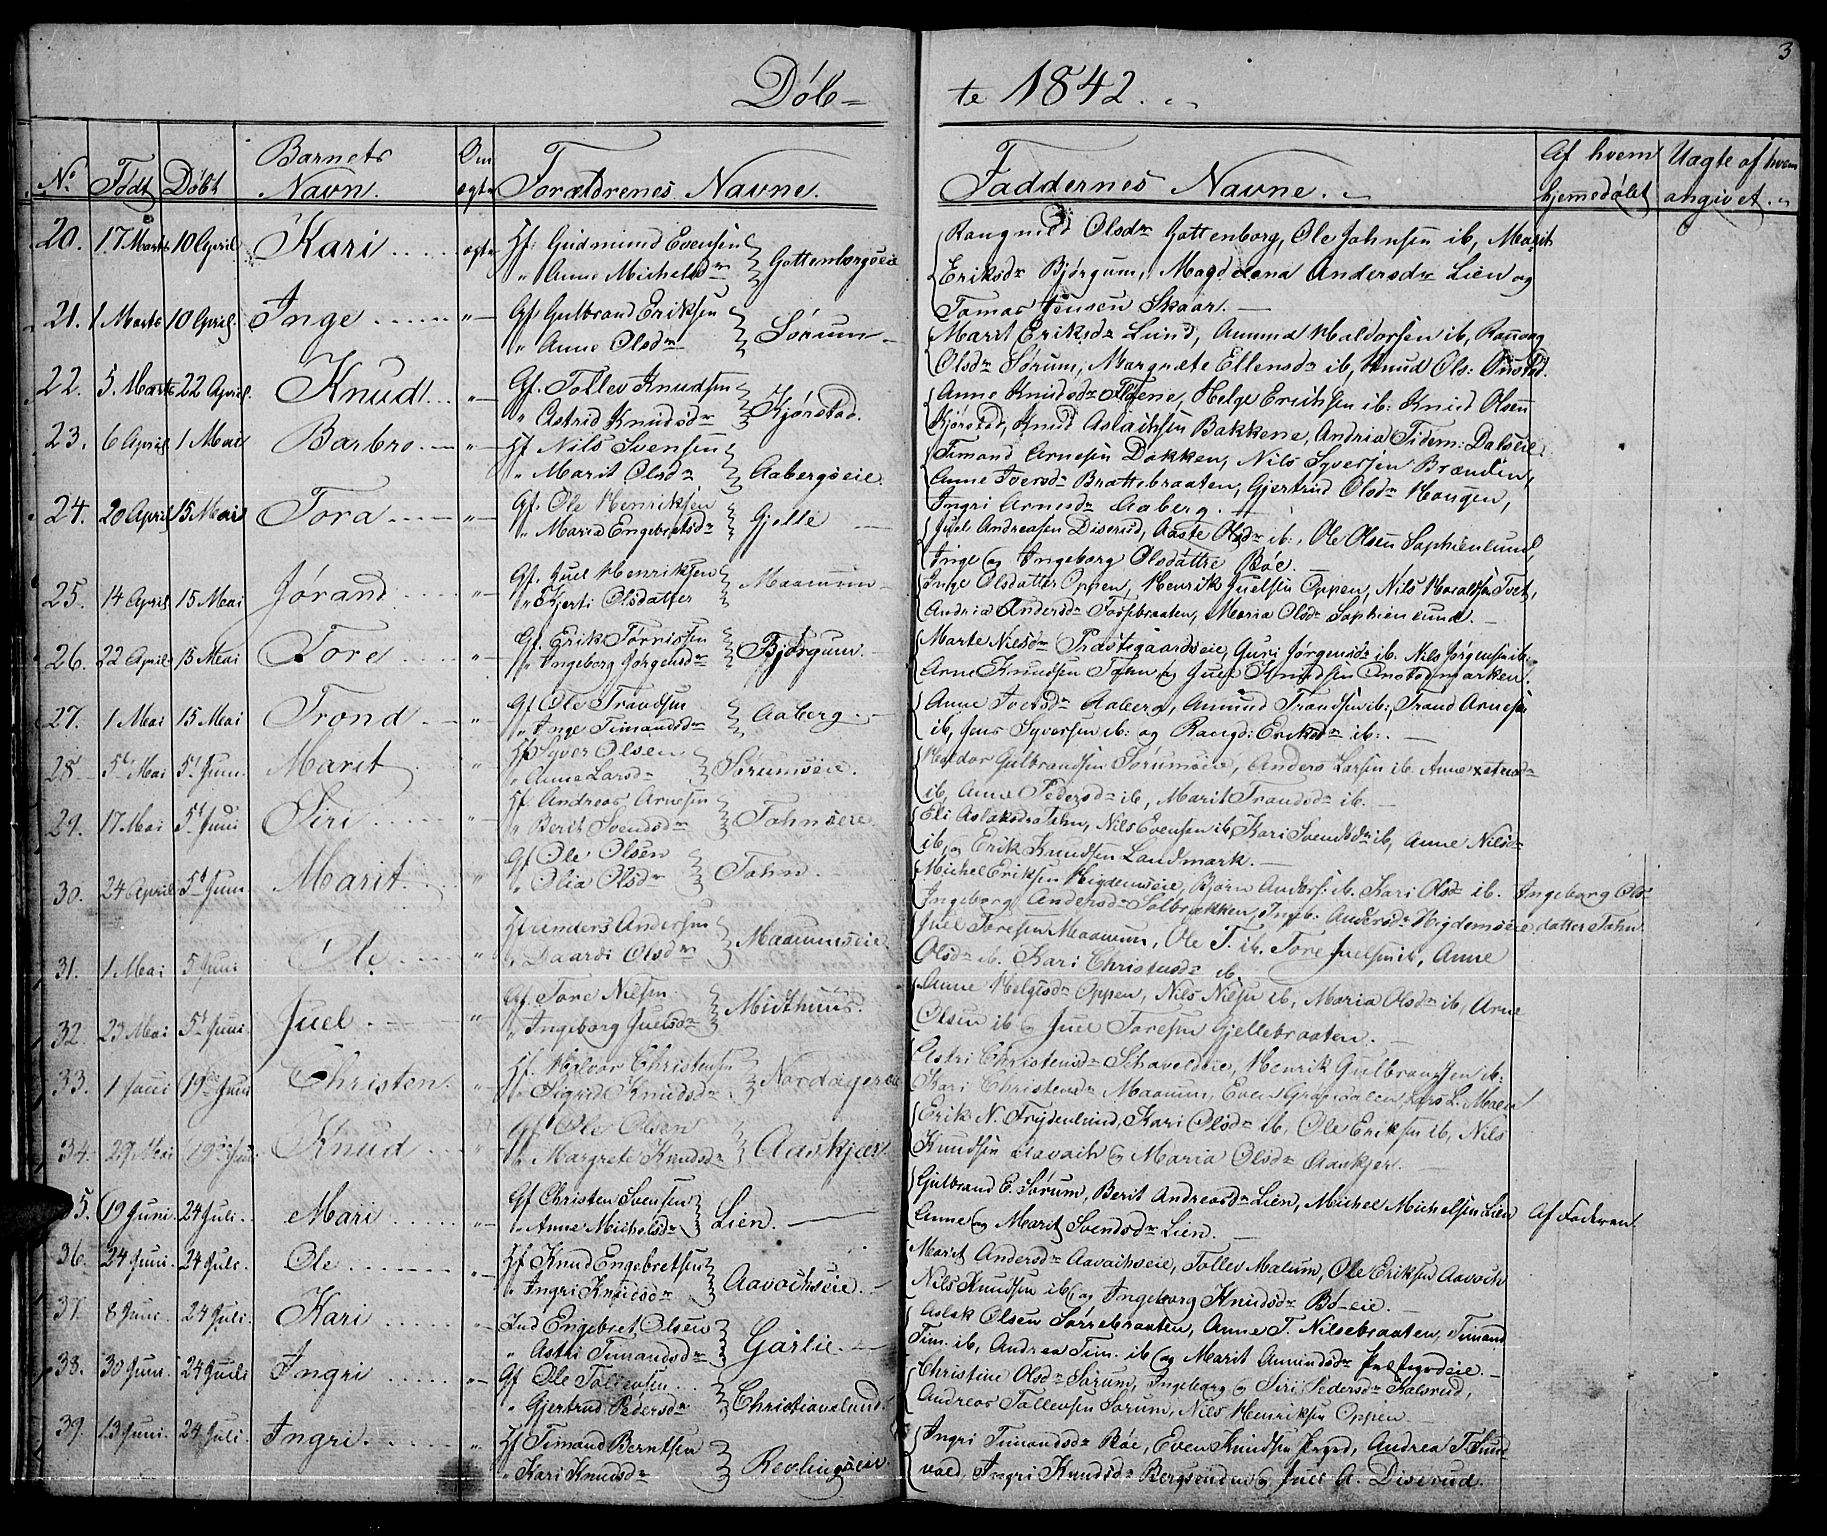 3
Døb= te 1842.
No. Født Døbt Barnets Navn. Om ægte Forældrenes Navne. Faddernes Navne. Af hvem hjemmedøbt Uægte af hvem angivet.
20. 17 Marts 10 April Kari ægte Hf: Gudmund Evensen " Anne Michelsdr Gottenborgseie
Rangnild Olsdr Gottenborg, Ole Johnsen ib, Marit
Eriksdr Bjørgum, Magdelena Andersdr Lien og
Tomas Jensen Skaar.
21. 1 Marts 10 April. Inge " Gf Gulbrand Eriksen " Anne Olsdr Sørum
Marit Eriksdr Lund, Amund Haldorsen ib, Ranvog
Olsdr Sørum, Margræte Ellensdr ib, Knud Ols:
22. 5. Marts 22 April. Knud " Gf. Tollev Knudsen " Astrid Knudsdr Kjørstad.
Anne Knudsdr Tløene, Helge Eriksen ib: Knud Olsen
Kjørstad, Knud Aslachsen Bakkene, Andria Tidem: Dalseie.
23. 6 April 1 Mai Barbro " Hf Nils Svensen " Marit Olsdr Aabergseie.
Timand Arnesen Dokken, Nils Syversen Brænden,
Anne Iversdr Brattebraaten, Gjertrud Olsdr Haugen,
Ingri Arnesdr Aaberg.
24. 20 April 15 Mai Tora " Gf. Ole Henriksen " Maria Engebretsdr Gjelle
Juel Andreasen Diserud, Aaste Olsdr ib:, Ole Olsen Sophienlund
Inge og Ingeborg Olsdøttre Bøe.
25. 14 April 15 Mai Jørand " Gf. Juel Henriksen " Kjerti Olsdatter Maamum
Inge Olsdatter Oppen, Henrik Juelsen Oppen, Nils Haraldsen Tvet,
Andria Andersdr Fossebraaten, Maria Olsdr Sophienlund.
26. 22 April 15 Mai Tore " Gf. Erik Tørrissen " Ingeborg Jørgensdr Bjørgum
Marte Nilsdr Præstegaardseie, Guri Jørgensdr ib. Nils Jørgensen ib.
Arne Knudsen Tahn og Juel Knudsen Onstadmarken.
27. 1 Mai 15 Mai Trond " Gf Ole Trandsen " Inge Timandsdr Aaberg
Anne Iversdr Aaberg, Amund Trandsen ib:, Trand Arnesen
ib, Jens Syversen ib: og Rangd: Eriksdr ib:.
28 5te Mai 5t Juni Marit " Hf Syver Olsen " Anne Larsdr Sørumseie.
Haldor Gulbrandsen Sørumseie, Anders Larsen ib. Anne
ib, Anne Pedersdr ib, Marit Trandsdr ib.
29. 17 Mai 5t Juni Siri " Hf. Andreas Arnesen " Berit Svendsdr Tahnseie.
Eli Aslaksdr Tahn, Nils Evensen ib, Kari Svendsdr ib, Anne Nilsdr
ib, og Erik Knudsen Landmark.
30. 24 April 5te Juni Marit " Gf Ole Olsen " Olia Olsdr Tahn
Michel Eriksen Higdemseie, Bjørn Anders: ib. Kari Olsdr ib. Ingeborg Ols-
Ingeborg Andersdr Solbrækken, Ingeb. Andersdr Higdemseie datter Tahn
31. 1 Mai 5 Juni Ole " Hf Anders Andersen " Daardi Olsdr Maamumseie
Juel Toresen Maamum, Ole T. ib. Tore Juelsen ib, Anne
Olsdr ib. Kari Christensdr ib.
32. 23 Mai 5t Juni Juel " Gf Tore Nilsen " Ingeborg Juelsdr Midthuus.
Anne Helgesdr Oppen, Nils Nilsen ib, Maria Olsdr ib, Arne
Olsen ib og Juel Toresen Gjellebraaten.
33. 1 Juni 19de Juni Christen " Hf. Halvor Christensen " Sigrid Knudsdr Nordagereie
Astri Christensdr, Henrik Gulbrandsen ib:
Kari Christensdr Maamum, Even, Lars L. Moen
34. 29 Mai 19de Juni Knud " Gf Ole Olsen " Margrete Knudsdr Aaskjær
Erik N. Frydenlund, Kari Olsdr ib, Ole Eriksen ib, Nils
Knudsen Aavaih og Maria Olsdr Aaskjer.
35. 19 Juni 24 Juli. Mari " Gf Christen Svensen " Anne Michelsdr Lien.
Gulbrand E. Sørum, Berit Andreasdr Lien, Michel Michelsen Lien Af Faderen.
Anne og Marit Svendsdr Lien.
36. 24 Juni 24 Juli. Ole " Hf Knud Engebretsen " Ingri Knudsdr Aavaihseie.
Marit Andersdr Aavaihseie, Tollev Malum, Ole Eriksen Aavaih
Nils Knudsen ib og Ingeborg Knudsdr Bøeie.
37. 8 Juni 24 Juli. Kari " Ind Engebret Olsen " Astri Timandsdr Garlie.
Aslak Olsen Sørrebraaten, Anne T. Nilsebraaten, Timand
Tim. ib, Andrea Tim. ib og Marit Amundsdr
38. 30 Juni 24 Juli Ingri " Gf Ole Tollevsen " Gjertrud Pedersdr Christianslund.
Christine Olsdr Sørum, Ingeborg og Siri Pedersdr Kalsrud,
Andreas Tollevsen Sørum, Nils Henriksen Oppen.
39. 13 Juni. 24 Juli. Ingri " Hf Timand Berntsen " Kari Knudsdr Revlingseie
Ingri Timandsdr Bøe, Even Knudsen, Andrea T. Sund-
vold, Ingri Knudsdr Bergsenden og Juel A. Diserud.